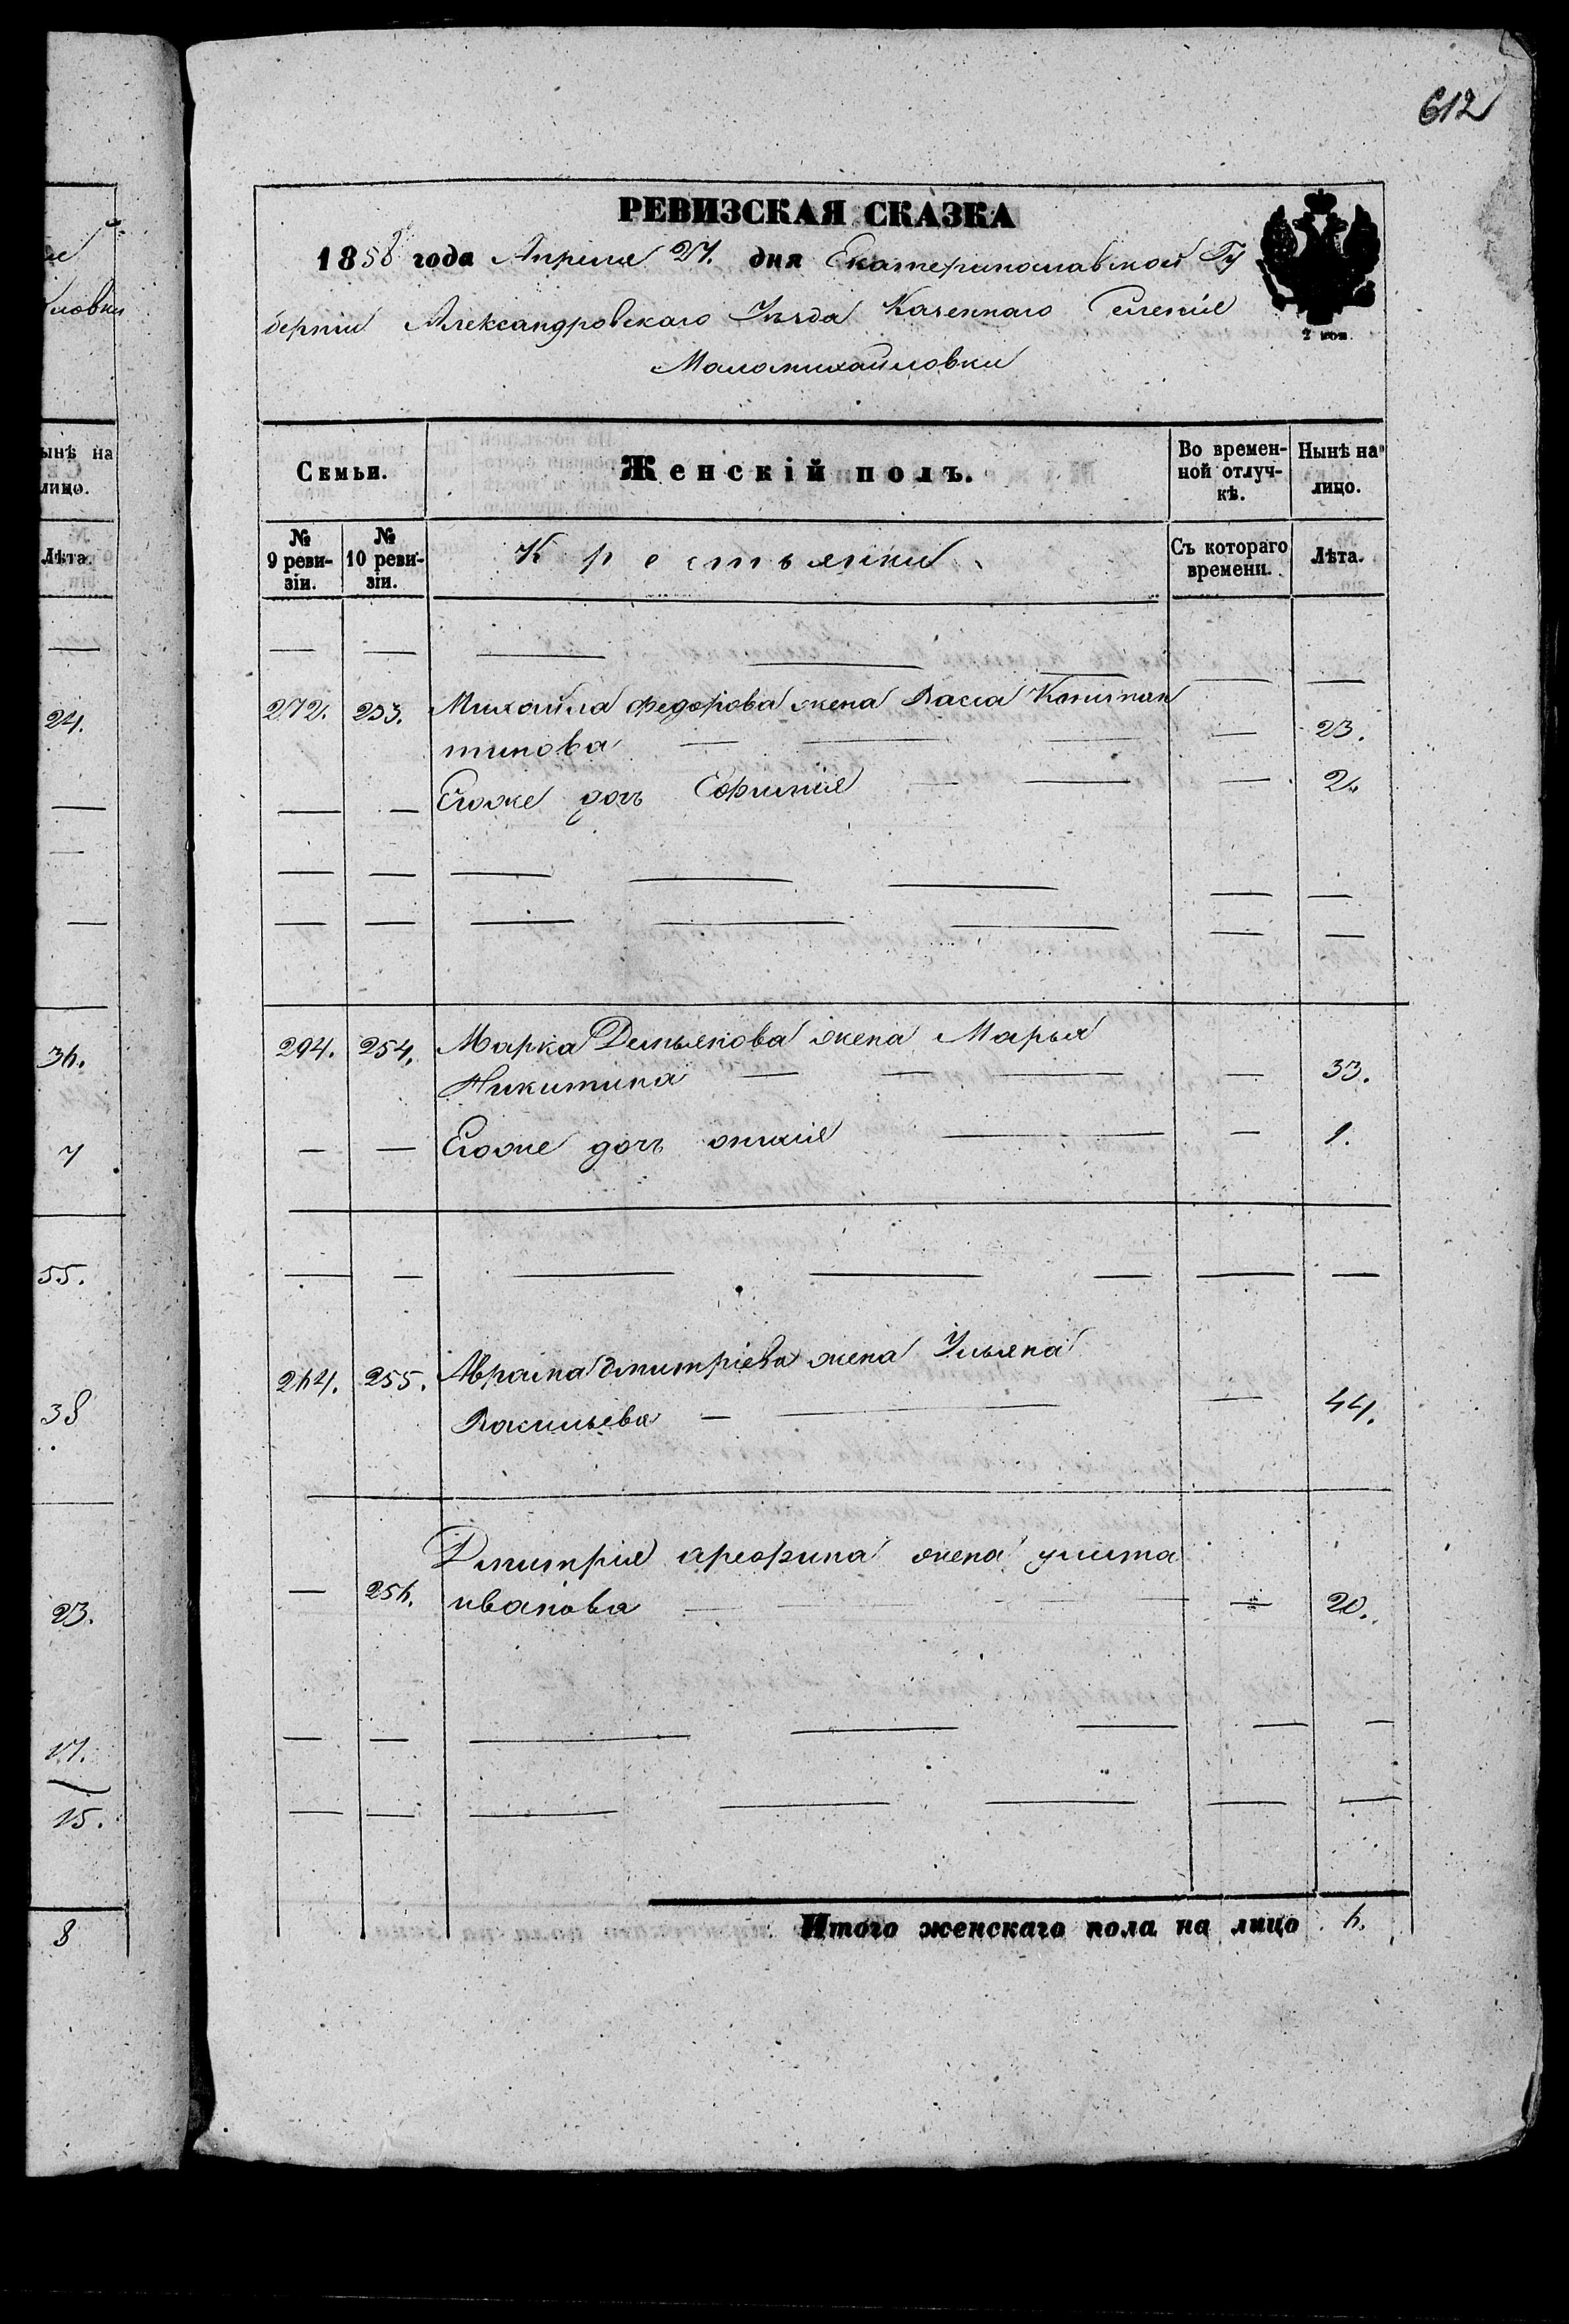 612
РЕВИЗСКАЯ СКАЗКА
1858 года Апреля 27. дня Екатеринославской Гу
берніи Александровскаго Уѣзда Казеннаго Селенія
Маломихайловки
2 коп.
Семьи. Женскій полъ. Во времен-ной отлуч-кѣ. Нынѣ на лицо.
№ 9 реви-зіи. № 10 реви-зіи. Крестьянки Съ котораго времени. Лѣта.
272. 253. Михайла федорова жена Васса Констан
тинова — — — — 23.
— — Егоже дочь Ефимія — — — 2.
294. 254. Марка Демьянова жена Марья
Никитина — — — — 33.
— — Егоже дочь — — 1.
264. 255. Аврама дмитріева жена Ульяна
Васильева — — — 44.
Дмитрія арефина жена улита
— 256. иванова — — — 20.
Итого женскаго пола на лицо 6.
ловки
ынѣ на
лицо.
Лѣта.
24.
36.
7
55.
38
23.
17.
15.
8